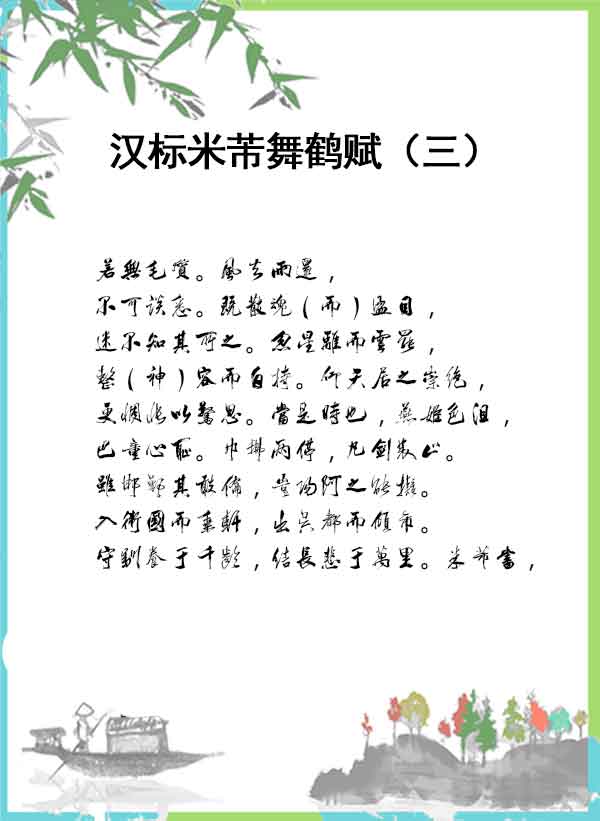 汉标米芾舞鹤赋（三）
若無毛質。風去雨還，
不可談悉。既散魂（而）盪目，
迷不知其所之。忽星離而雲罷，
整（神）容而自持。仰天居之崇绝，
更惆悵以驚思。當是時也，燕姬色沮，
巴童心恥。巾拂兩停，丸劍雙止。
雖邯鄲其敢倫，豈陽阿之能擬。
入衛國而乘軒，出吳都而傾市。
守馴養于千齡，結長悲于萬里。米芾書，